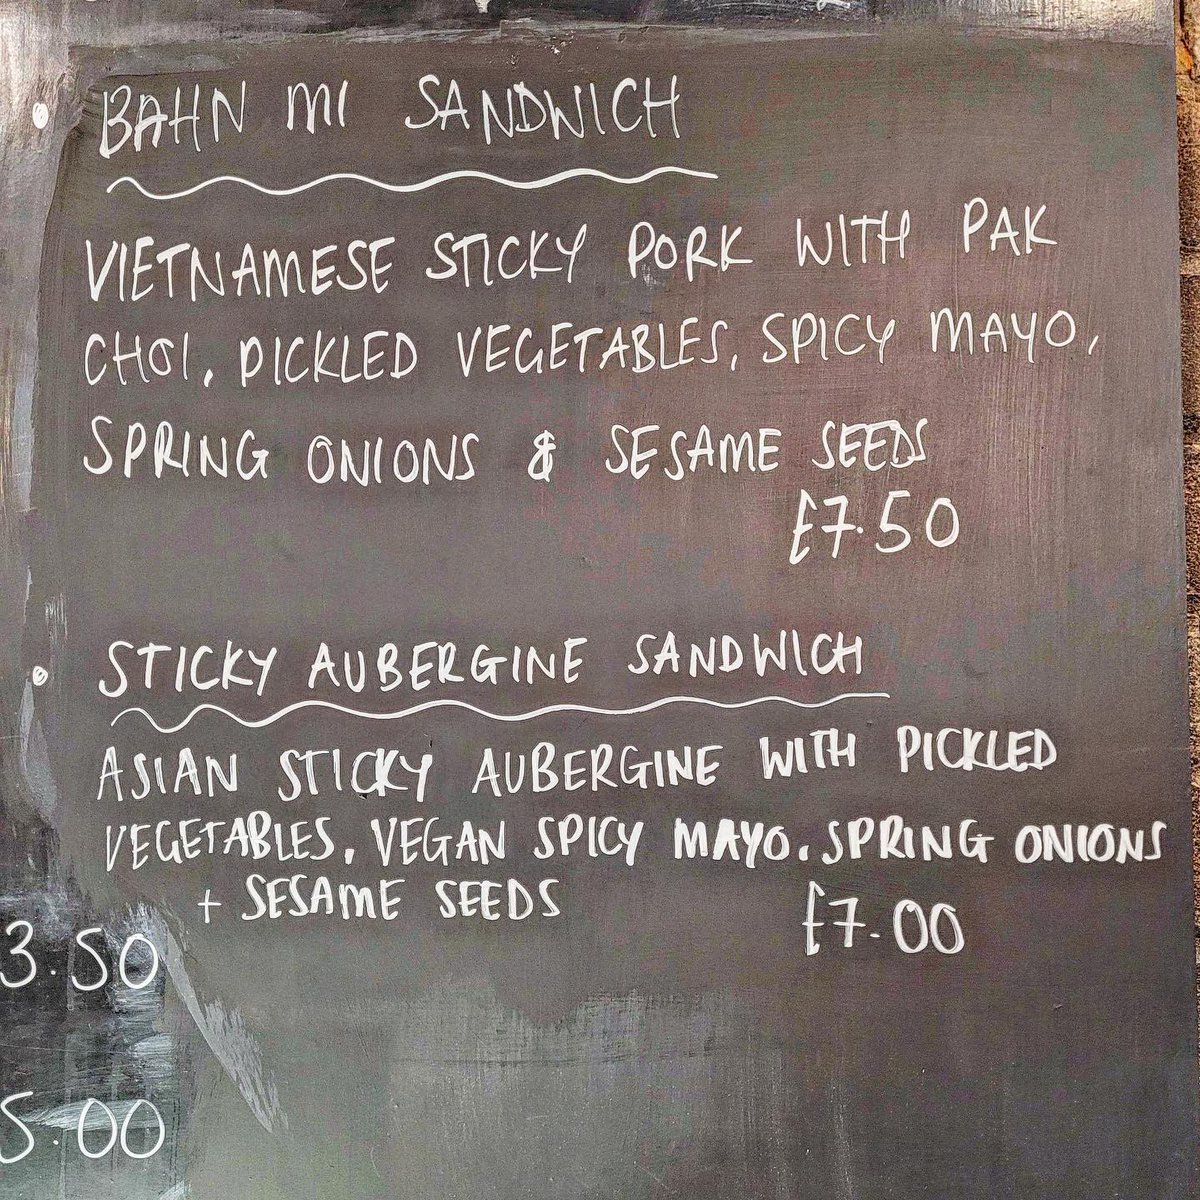 BAHN MI SANDWICH
VIETNAMESE STICKY PORK WITH PAK
CHOI, PICKLED VEGETABLES, SPICY MAYO,
SPRING ONIONS & SESAME SEEDS
£7.50
STICKY AUBERGINE SANDWICH
ASIAN STICKY AUBERGINE WITH PICKLED
VEGETABLES, VEGAN SPICY MAYO, SPRING ONIONS
+ SESAME SEEDS
£7.00
3.50
5.00